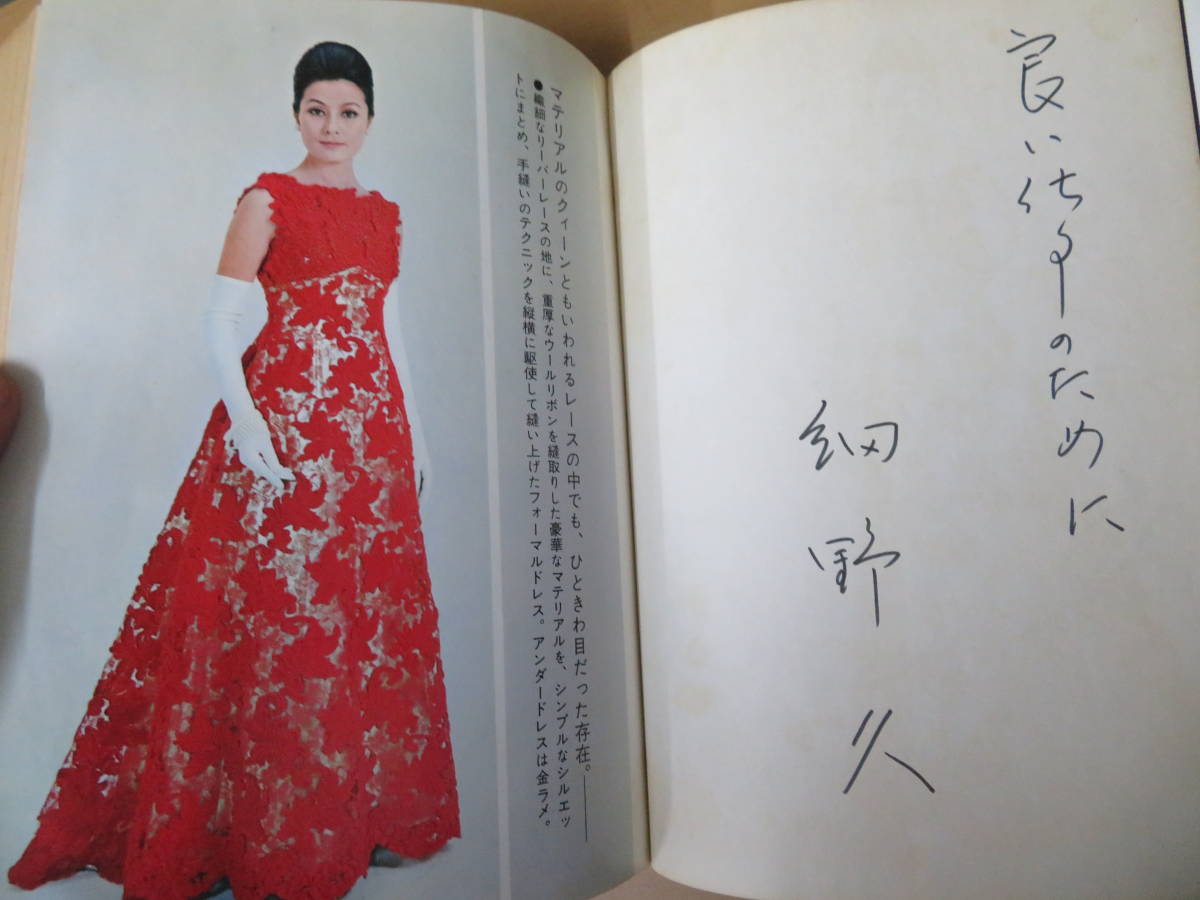 良い仕事のために
細野久
マテリアルのクィーンともいわれるレースの中でも、ひときわ目だった存在。——
●繊細なリーバーレースの地に、重厚なウールリボンを縫取りした豪華なマテリアルを、シンプルなシルエッ
トにまとめ、手縫いのテクニックを縦横に駆使して縫い上げたフォーマルドレス。アンダードレスは金ラメ。